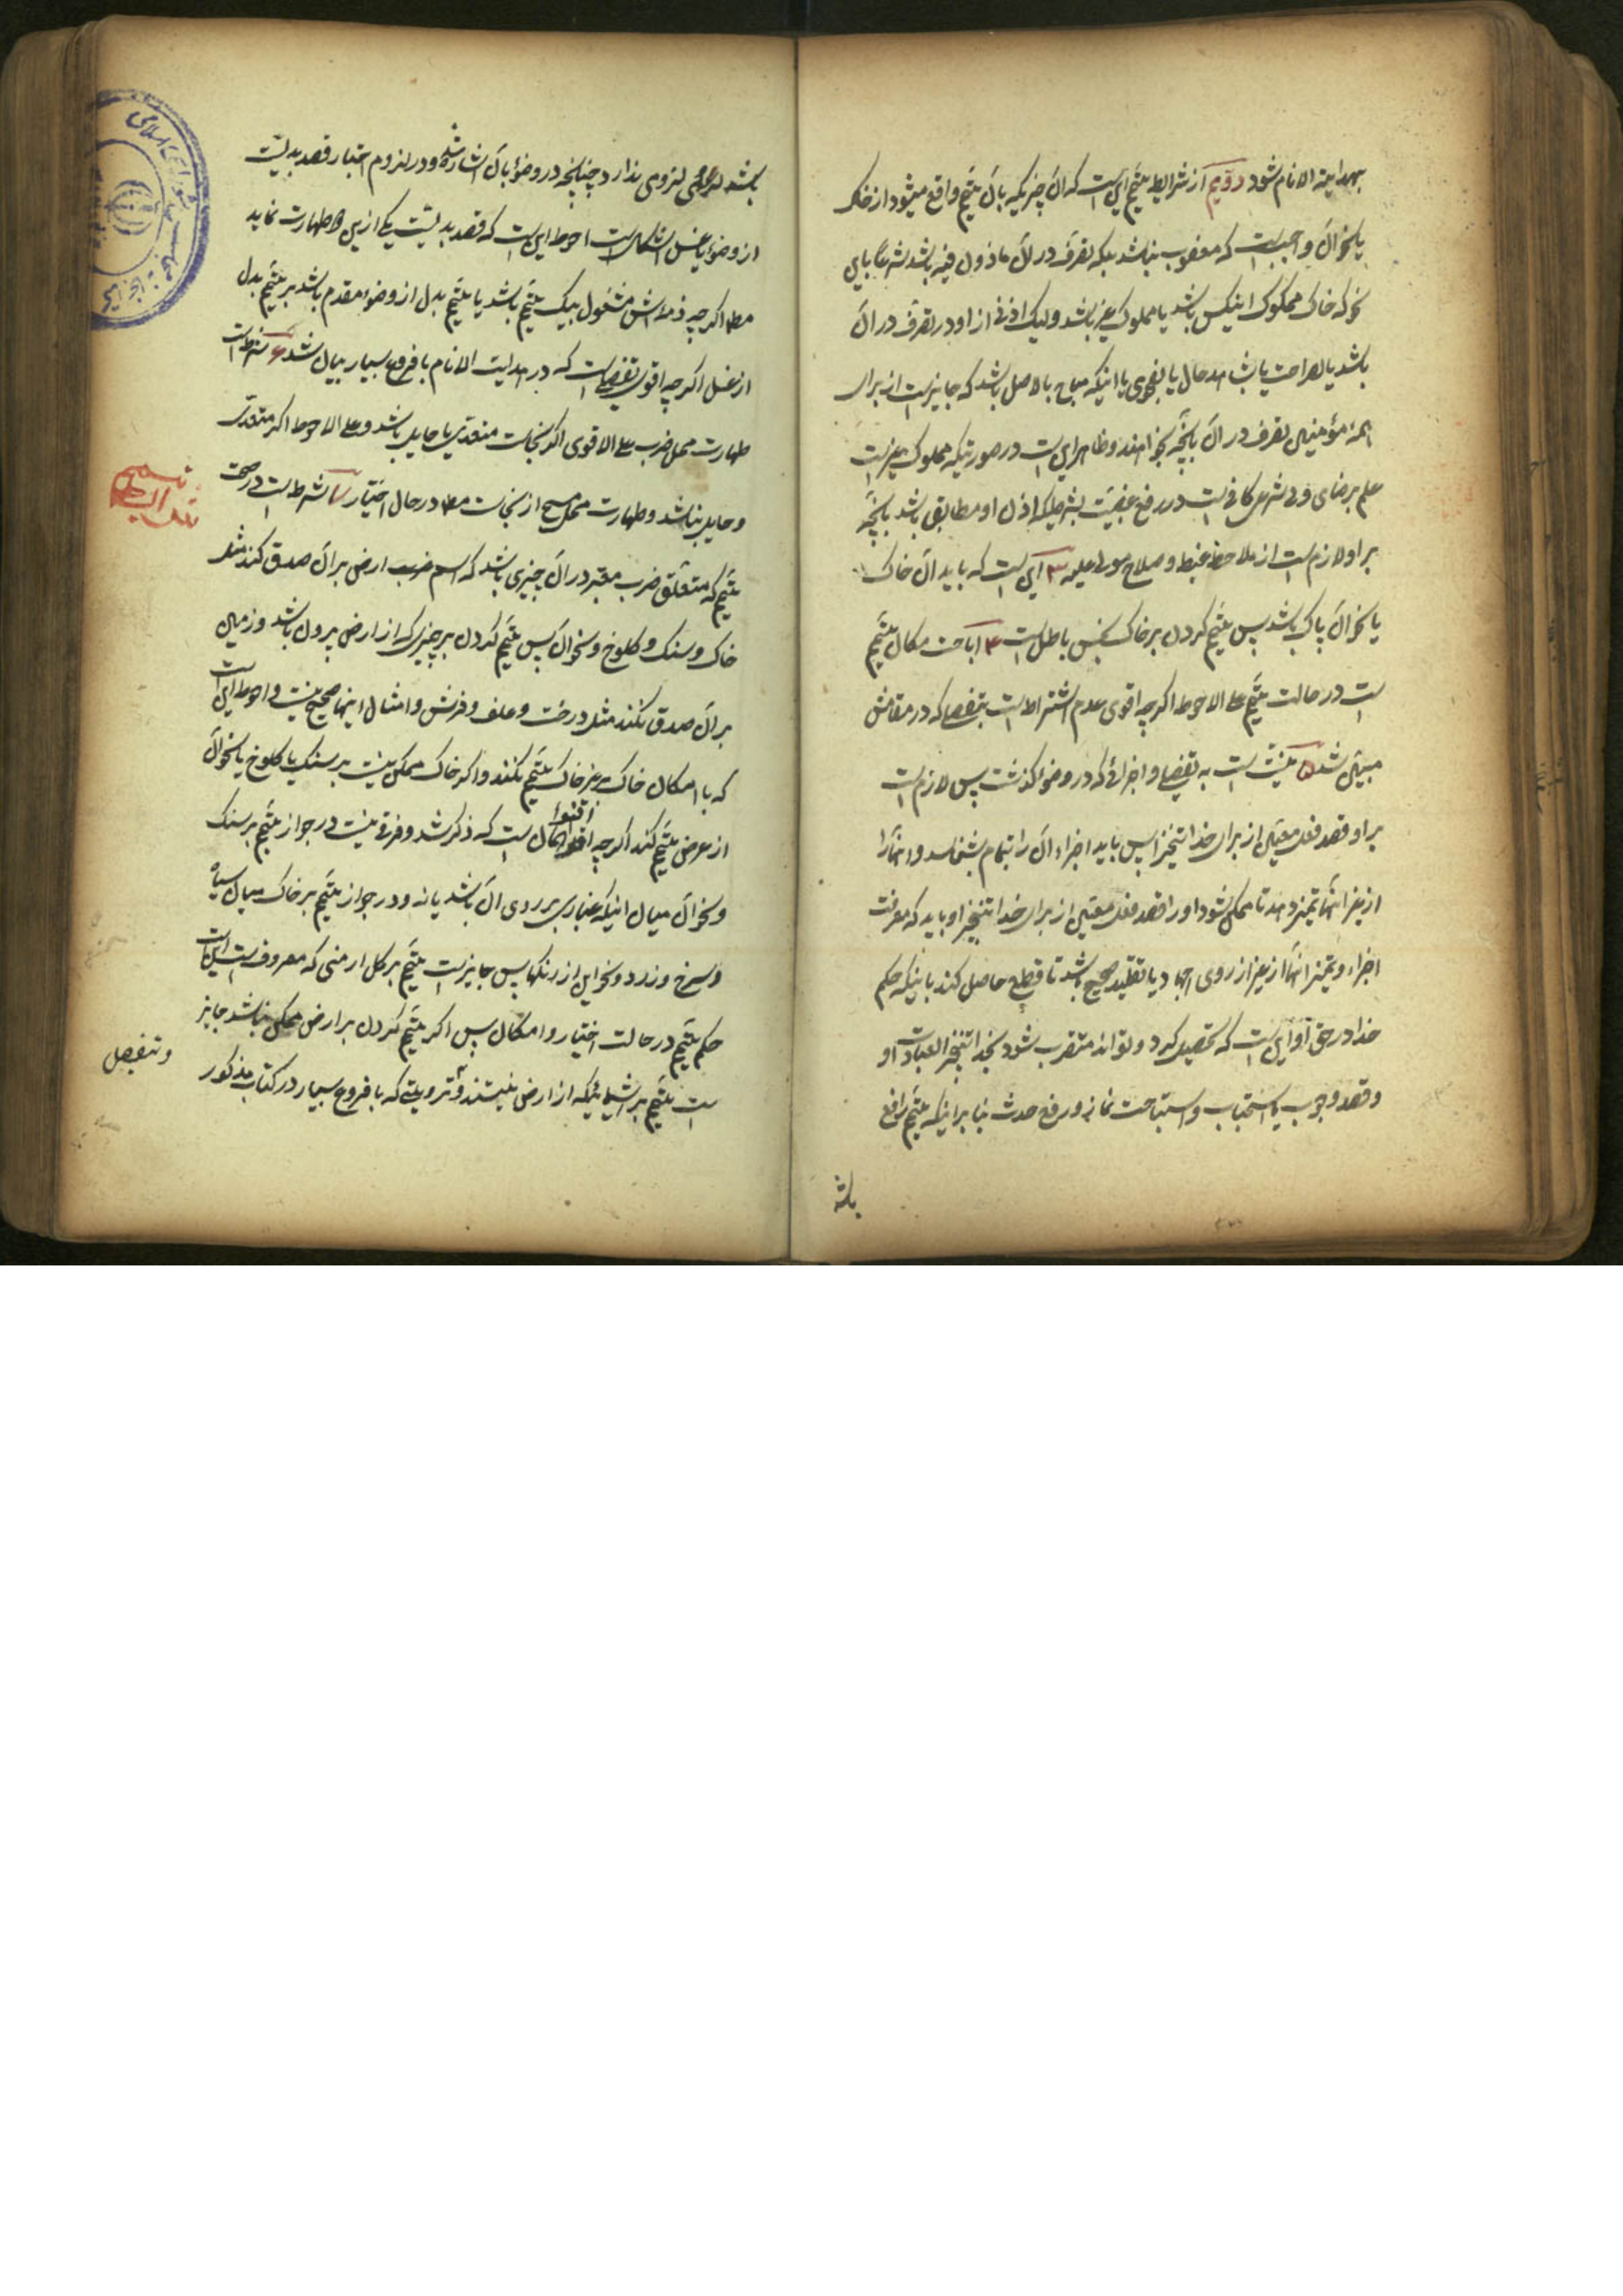 بهدایة الانام شود دویم از شرایط تیمم این است که آن چیزیکه بآن تیمم واقع میشود از خاک
یا نحو آن واجبست که مغصوب نباشد بلکه تصرف در آن ماذون فیه باشد شرعا باین
نحو که خاک مملوک اینکس باشد یا مملوک غیر باشد ولیک اذنی از او در تصرف در آن
باشد یا بصراحت یا بشاهد حال یا بفحوی یا اینکه مباح بالاصل باشد که جایز است از برای
همه مؤمنین تصرف در آن بآنچه بخواهند و ظاهر این است در صورتیکه مملوک غیر است
علم برضای ولی شرعی کافی است در رفع غصبیت بشرطیکه اذن او مطابق باشد بآنچه
بر او لازم است از ملاحظه غبطه و صلاح مولی علیه ۳ این است که باید آن خاک
یا نحو آن پاک باشد پس تیمم کردن بر خاک نجس باطل است ۴ اباحت مکان تیمم
است در حالت تیمم علی الاحوط اگرچه اقوی عدم اشتراط است بتفصیلی که در مقامش
مبین شده ۵ نیت است به تفصیل و اجزائی که در وضو گذشت پس لازم است
بر او قصد فعل معین از برای خدا تنجیزا پس باید اجزاء آن را بتمام بشناسد و آنها را
از غیر آنها تمیز دهد تا ممکن شود او را قصد فعل معین از برای خدا تنجیزا و باید که معرفت
اجزاء و تمیز آنها از غیر از روی اجتهاد یا تقلید صحیح باشد تا قطع حاصل کند باینکه حکم
خدا در حق او این است که تحصیل کرد و تواند متقرب شود بخدا تنجیزا بعبادت او
و قصد وجوب یا استحباب و استباحت نماز و رفع حدث بنا بر اینکه تیمم رافع
باشد
باشد لزومی ندارد چنانچه در وضو بآن اشاره شده و در لزوم اعتبار قصد بدلیت
از وضو یا غسل اشکال است احوط این است که قصد بدلیت یکی از این دو طهارت نماید
مطلقا اگرچه ذمه اش مشغول بیک تیمم باشد یا تیمم بدل از وضو مقدم باشد بر تیمم بدل
از غسل اگرچه اقوی تفصیل است که در هدایت الانام با فروع بسیار بیان شد ۶ شرط است
طهارت محل ضرب علی الاقوی اگر نجاست متعدی یا حایل باشد و علی الاحوط اگر متعدی
و حایل نباشد و طهارت محل مسح از نجاست مطلقا در حال اختیار شرط است در صحت
تیمم که متعلق ضرب معتبر در آن چیزی باشد که اسم ارض بر آن صدق کند مثل
خاک و سنگ و کلوخ و نحو آن پس تیمم کردن بر چیزی که از ارض بیرون باشد و زمین
بر آن صدق نکند مثل درخت و علف و فرش و امثال اینها صحیح نیست و احوط این است
که با امکان خاک بر غیر خاک تیمم نکند و اگر خاک ممکن نیست بر سنگ یا کلوخ یا نحو آن
از عرض تیمم کند اگرچه اقوی آن است که ذکر شد و فرقی نیست در جواز تیمم بر سنگ
و نحو آن میان اینکه غباری بر روی آن باشد یا نه و در جواز تیمم بر خاک میان سیاه
و سرخ و زرد و نحو این از رنگها پس جایز است تیمم بر گل ارمنی که معروف است این است
حکم تیمم در حالت اختیار و امکان پس اگر تیمم کردن بر ارض ممکن نباشد جایز
است تیمم بر اشیائیکه از ارض نیستند و ترتیبی که با فروع بسیار در کتاب مذکور
و تفصیل